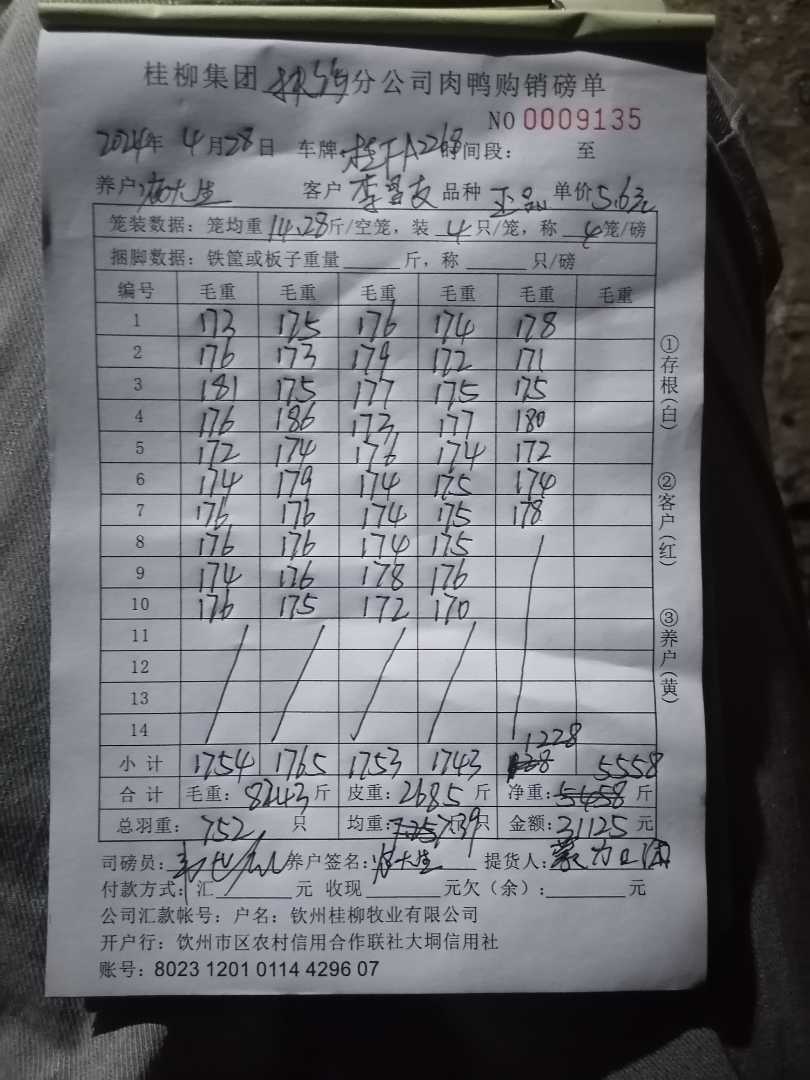 桂柳集团 分公司肉鸭购销磅单
NO 0009135
2024年 4月28日 车牌: 桂 A2268 时间段: 至
养户: 大生 客户 李 友 品种 正品 单价5.6元
笼装数据: 笼均重14.28斤/空笼, 装 4 只/笼, 称 4 笼/磅
捆脚数据: 铁筐或板子重量 斤, 称 只/磅
编号 毛重 毛重 毛重 毛重 毛重 毛重
1 173 175 176 174 178
2 176 173 179 172 171
3 181 175 177 175 175
4 176 186 173 177 180
5 172 174 176 174 172
6 174 179 174 175 174
7 176 176 174 175 178
8 176 176 174 175
9 174 176 178 176
10 176 175 172 170
11
12
13
14
小计 1754 1765 1753 1743 1228 5558
合计 毛重: 8243斤 皮重: 2685斤 净重: 5458斤
总羽重: 752 只 均重: 7.39 只 金额: 31125元
司磅员: 养户签名: 大生 提货人:
付款方式: 汇 元 收现 元欠(余): 元
公司汇款帐号: 户名: 钦州桂柳牧业有限公司
开户行: 钦州市区农村信用合作联社大垌信用社
账号: 8023 1201 0114 4296 07
①存根(白)
②客户(红)
③养户(黄)